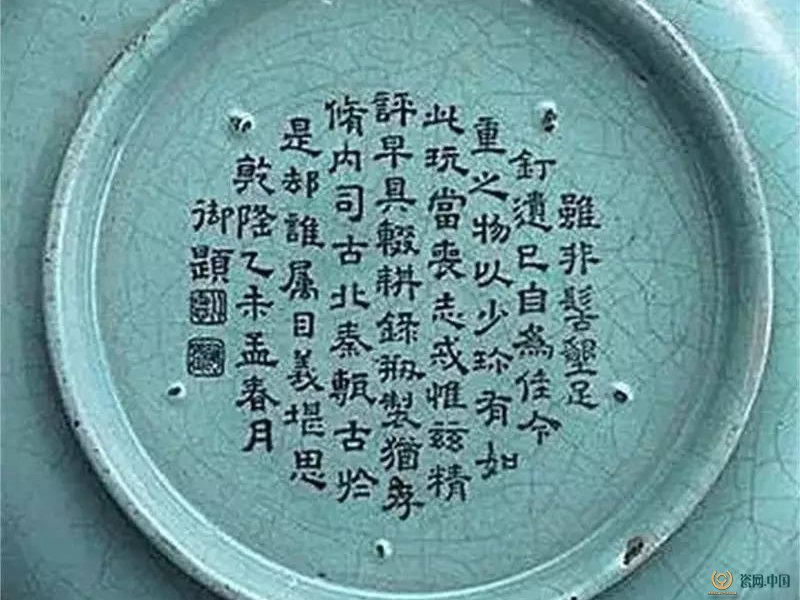 雖非髻墾足
釘遺已自為佳今
重之物以少珍有如
此玩當喪志戒惟茲精
評早具輟耕錄刱製猶存
脩內司古北秦甄古於
是却誰屬目義堪思
乾隆乙未孟春月
御題
瓷网.中国